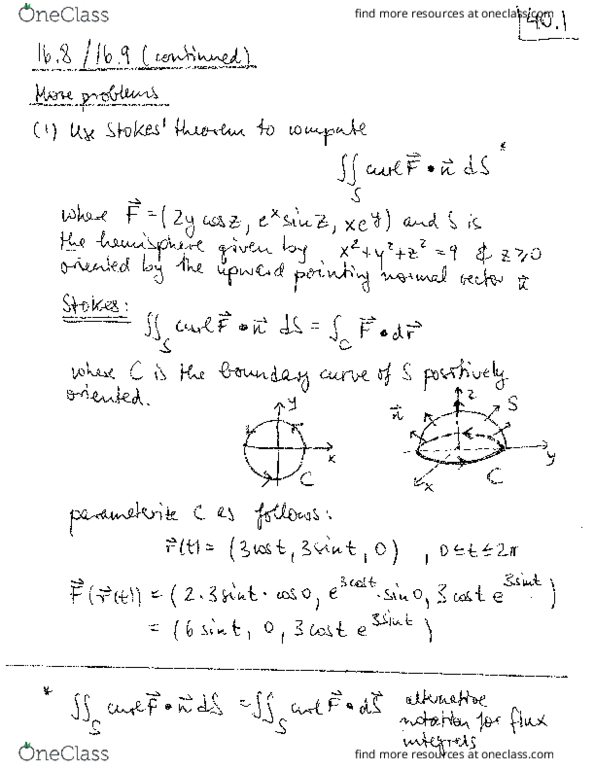 OneClass
find more resources at oneclass.com
40.1
16.8 / 16.9 (continued)
More problems
(1) Use Stokes' theorem to compute
∬_S curl F⃗ • n⃗ dS *
where F⃗ = (2y cos z, e^x sin z, x e^y) and S is
the hemisphere given by x² + y² + z² = 9 & z ≥ 0
oriented by the upward pointing normal vector n⃗
Stokes:
∬_S curl F⃗ • n⃗ dS = ∫_C F⃗ • dr⃗
where C is the boundary curve of S positively
oriented.
y
x
C
n⃗
z
S
y
x
C
parameterize C as follows:
r⃗(t) = (3 cos t, 3 sin t, 0) , 0 ≤ t ≤ 2π
F⃗(r⃗(t)) = (2·3 sin t · cos 0, e^{3 cos t} · sin 0, 3 cos t e^{3 sin t})
= (6 sin t, 0, 3 cos t e^{3 sin t})
* ∬_S curl F⃗ • n⃗ dS = ∬_S curl F⃗ • dS⃗ alternative
notation for flux
integrals
OneClass
find more resources at oneclass.com